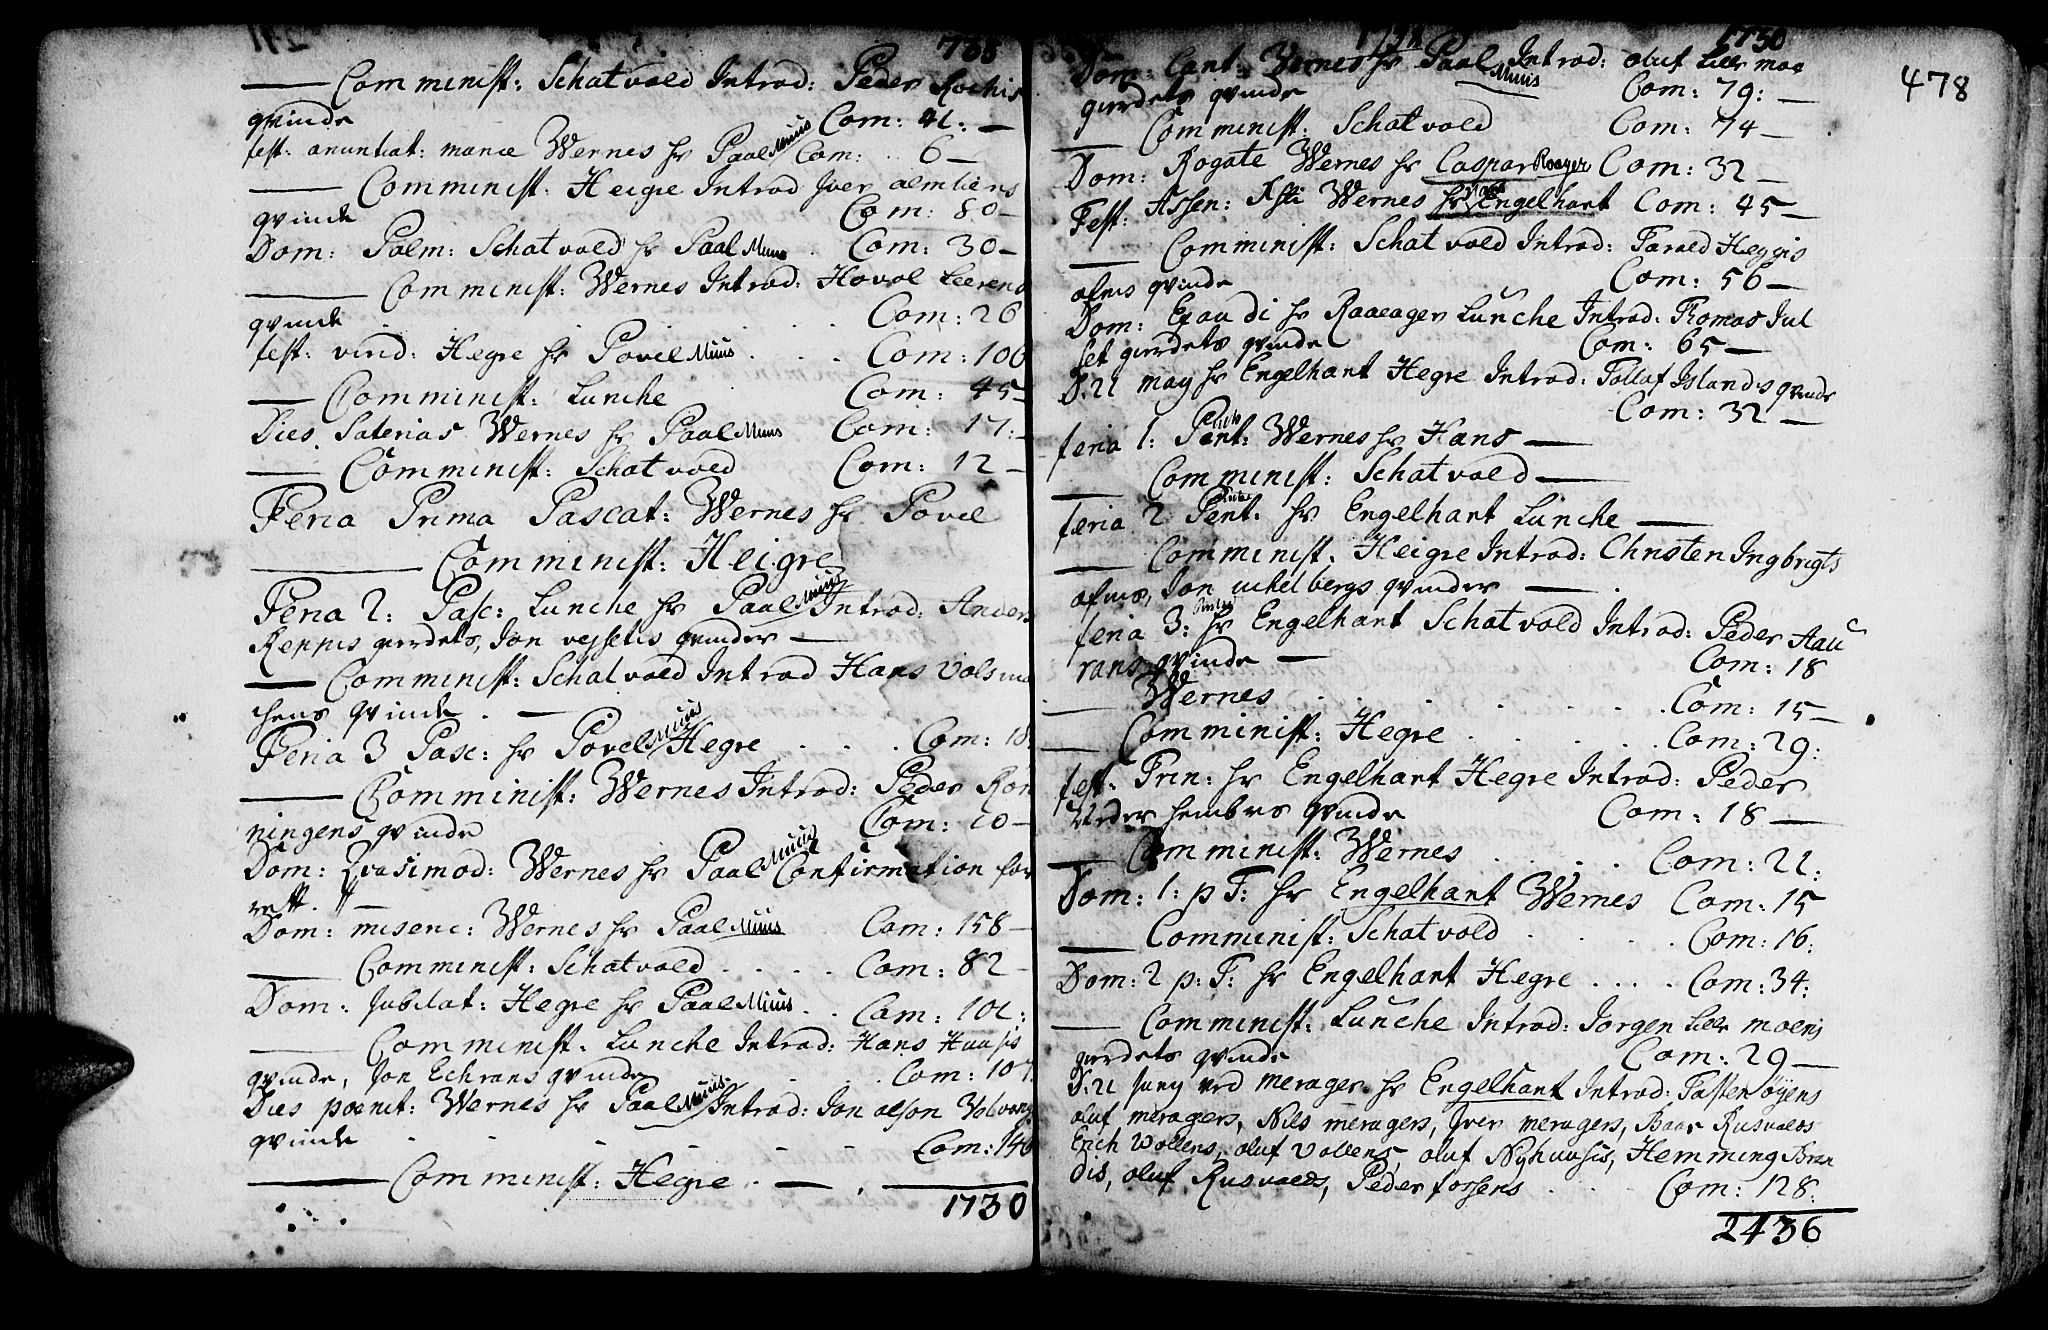 738
— Comminist: Schatvold Introd: Peder Rochis
qvinde Com: 41: —
fest: anuntiat: mariæ Wernes hr Paal Muus Com: 6 —
— Comminist: Heigre Introd Iver almliens
qvinde Com: 80 —
Dom: Palm: Schatvold hr Paal Muus Com: 30 —
— Comminist: Wernes Introd: Havol Leerens
qvinde Com: 26
fest: virid: Hegre hr Povel Muus Com: 100
— Comminist: Lunche Com: 45 —
Dies Wernes hr Paal Muus Com: 17: —
— Comminist: Schatvold Com: 12 —
Feria Prima Pascat: Wernes hr Povel
— Comminist: Heigre
Feria 2: Pasc: Lunche hr Paal Muus Introd: Anders
Rennis gierdets, Jon vejsetis qvinder —
— Comminist: Schatvold Introd Hans Vols
chens qvinde . —
Feria 3 Pasc: hr Povel Muus Hegre Com: 18
— Comminist: Wernes Introd: Peder Ron
ningens qvinde Com: 10 —
Dom: Qvasimod: Wernes hr Paal Muus Confirmation for
rett. —
Dom: miseric: Wernes hr Paal Muus Com: 158 —
— Comminist: Schatvold Com: 82 —
Dom: Jubilat: Hegre hr Paal Muus Com: 101:
— Comminist: Lunche Introd: Hans Huusis
qvinde, Jon Echrans qvinde Com: 107
Dies poenit: Wernes hr Paal Muus Introd: Jon olson Volvang
qvinde Com: 140
— Comminist: Hegre . — .
1730
1730
478
Dom: Cant: Wernes hr Paal Muus Introd: oluf Lille moe
gierdets qvinde Com: 79: —
— Comminist: Schatvold Com: 74 —
Dom: Rogate Wernes hr Caspar Roager Com: 32 —
Fest: Assen: Xsti Wernes hr Engelhart Com: 45 —
— Comminist: Schatvold Introd: Farald Heggis
ofnis qvinde Com: 56 —
Dom: Exaudi hr Raaeager Lunche Introd: Thomas Jul
set gierdets qvinde Com: 65 —
D: 21 may hr Engelhart Hegre Introd: Tollaf Islands qvinde
Com: 32 —
feria 1: Pent: Wernes hr Hans —
— Comminist: Schatvold —
feria 2 Pent: hr Engelhart Lunche —
— Comminist: Heigre Introd: Christen Ingbrigts
ofnis, Jon michelbergs qvinder — .
feria 3: hr Engelhart Schatvold Introd: Peder Aau
rans qvinde — Com: 18
— Wernes Com: 15 —
— Comminist: Hegre Com: 29:
fest: Trin: hr Engelhart Hegre Introd: Peder
hembres qvinde Com: 18 —
— Comminist: Wernes Com: 21:
Dom: 1: p T: hr Engelhart Wernes Com: 15
— Comminist: Schatvold Com: 16:
Dom: 2 p: T: hr Engelhart Hegre Com: 34:
— Comminist: Lunche Introd: Jorgen Lille moens
gierdets qvinde Com: 29 —
D: 21 juny ved merager hr Engelhart Introd: Tosten öyens
oluf meragers, Nils meragers, Iver meragers, Baar Rusvolds
Erich Wollens, oluf Vollens, oluf Nyhuusis, Hemming Bran
dis, oluf Rusvolds, Peder forsens Com: 128:
2436